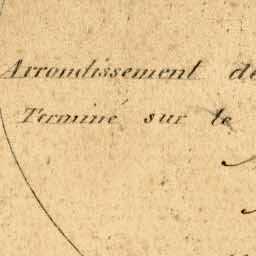 Arrondissement de
Terminé sur le